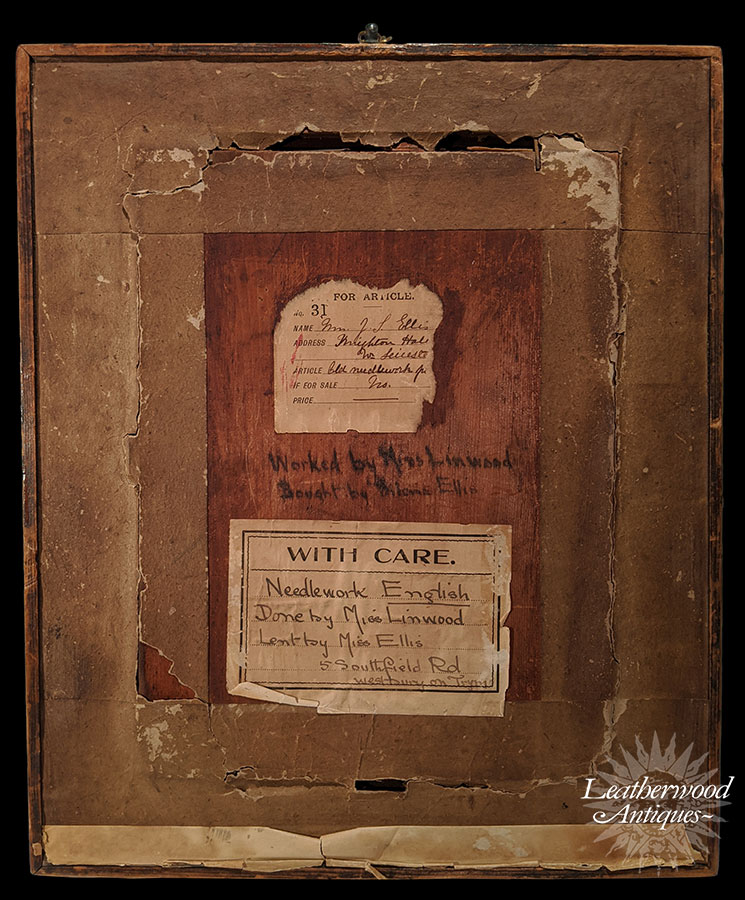 FOR ARTICLE.
No. 31
NAME J. S. Ellis
ADDRESS Knighton
Nr Leicest
ARTICLE Old needlework
IF FOR SALE No.
PRICE
Worked by Miss Linwood
Bought by Ellis
WITH CARE.
Needlework English
Done by Miss Linwood
Lent by Miss Ellis
5 Southfield Rd
Westbury on Trym
Leatherwood
Antiques~